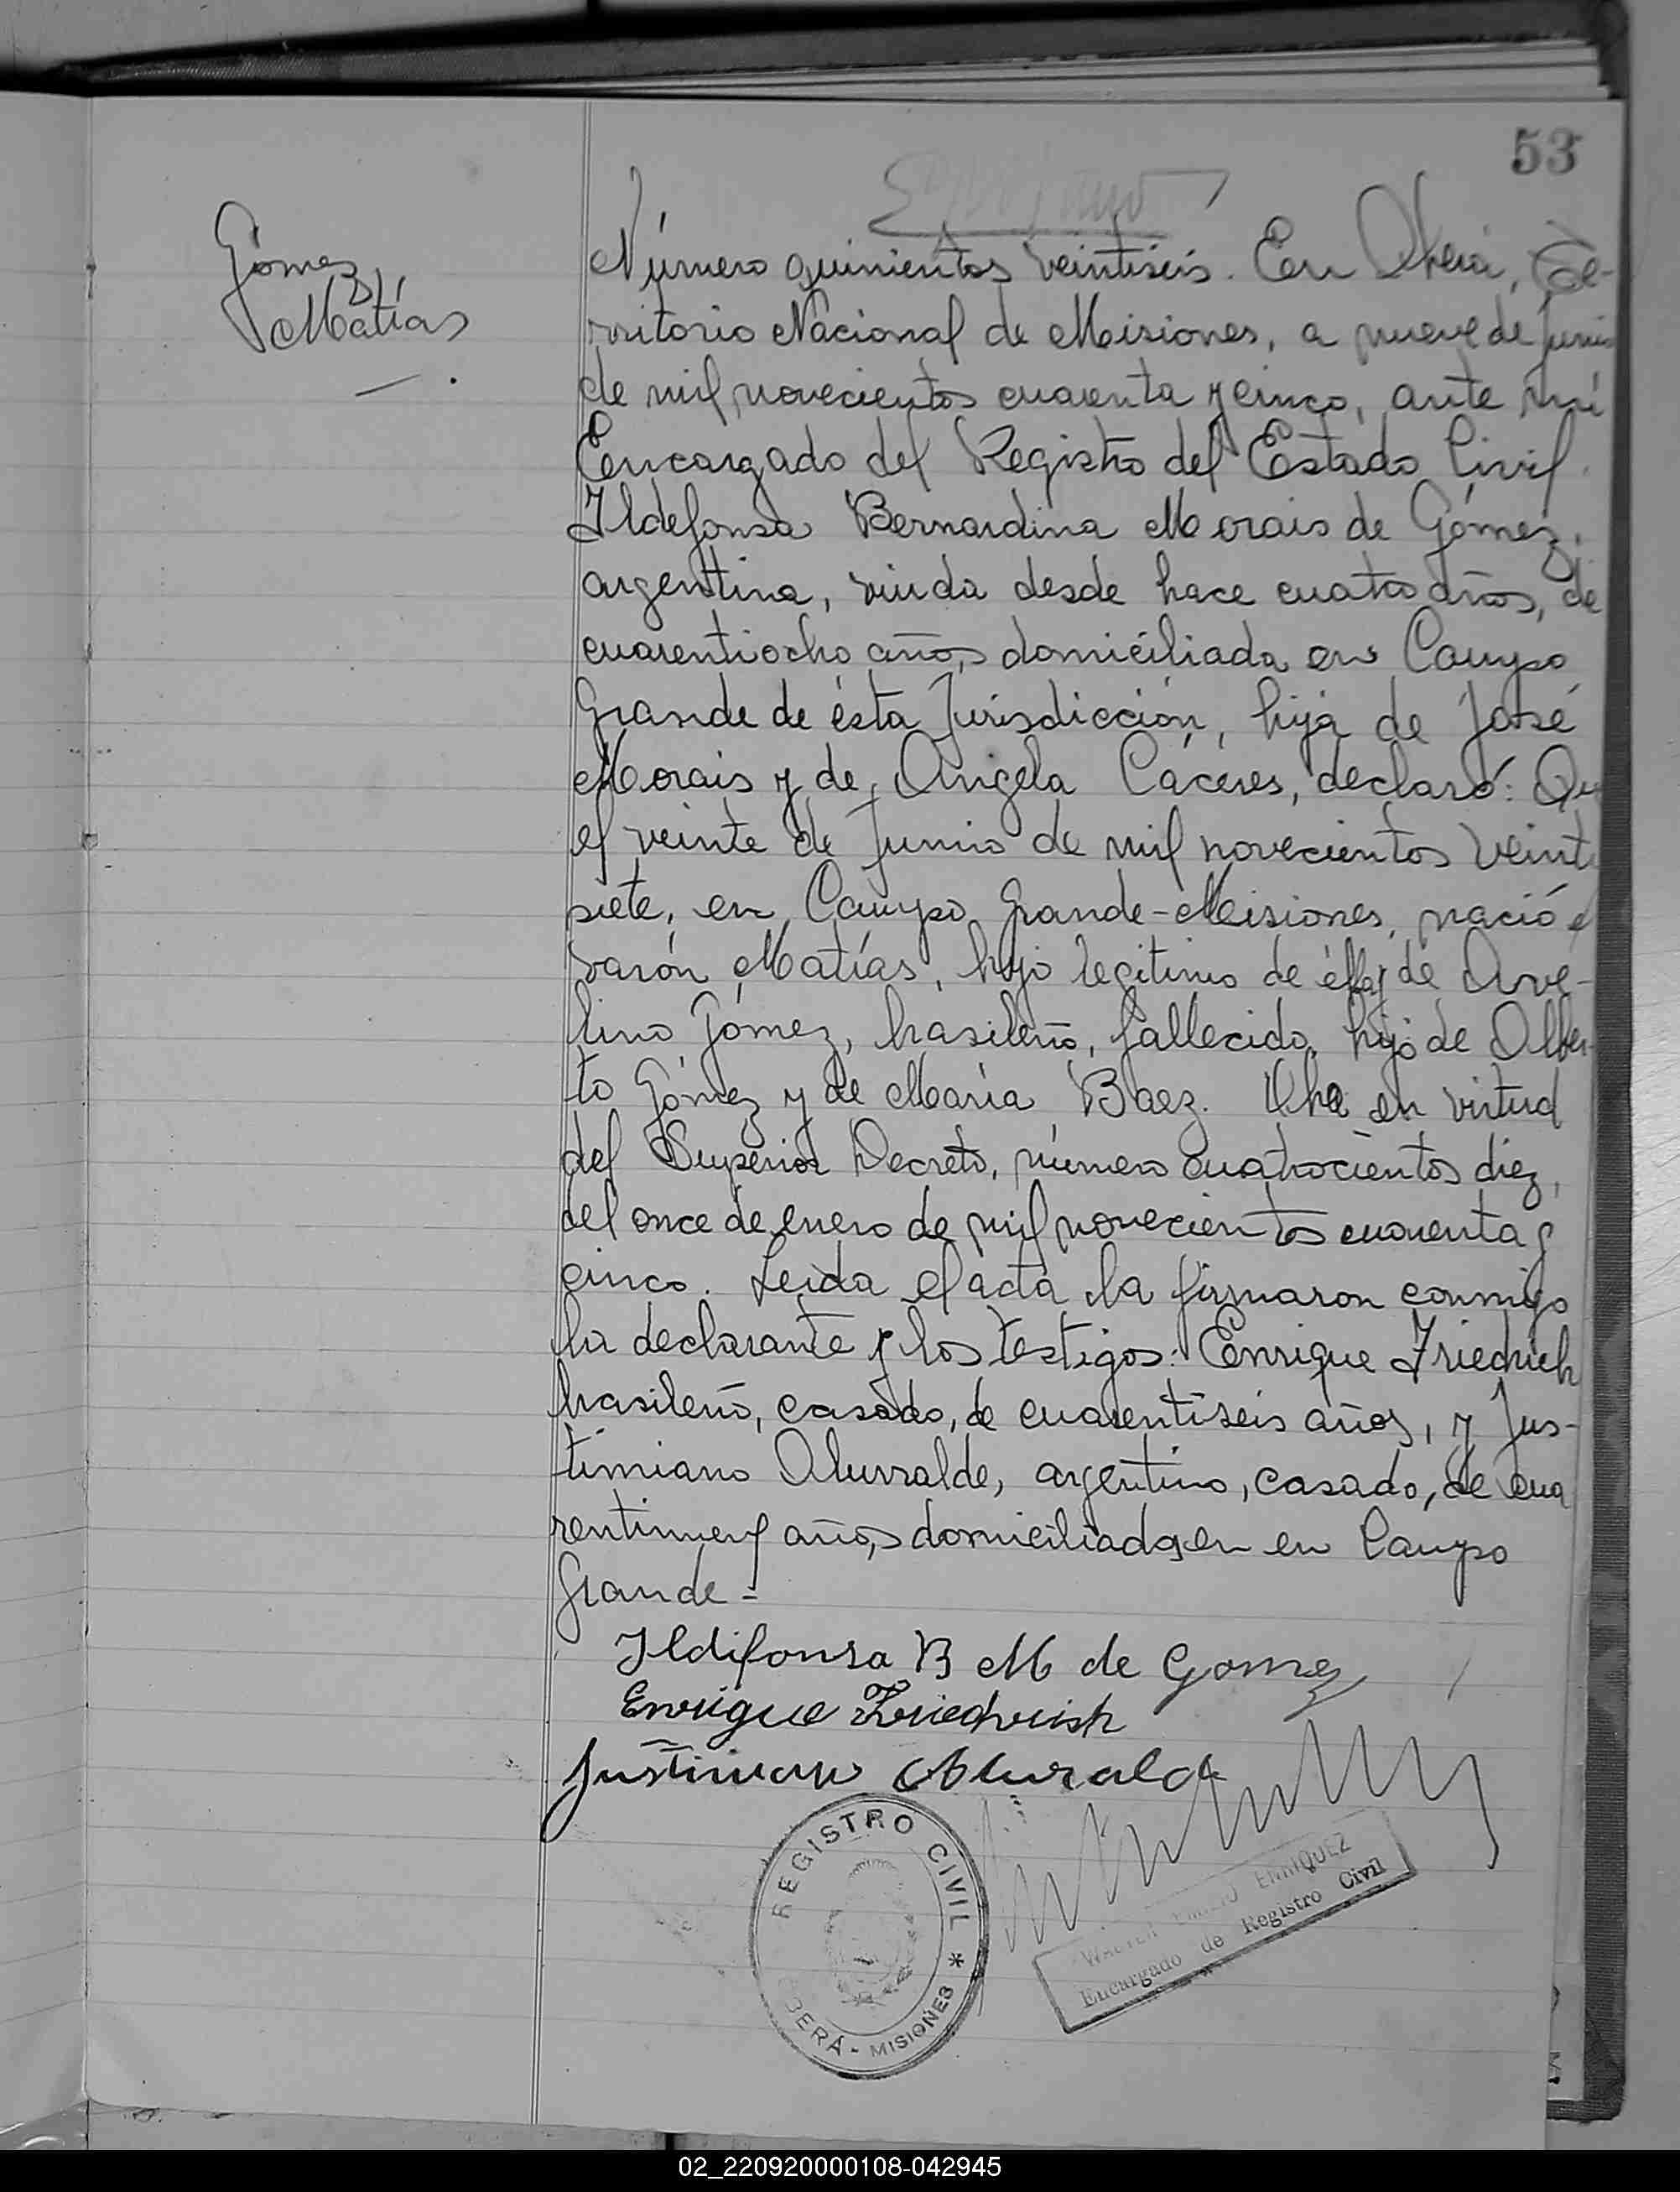 53
Gómez,
Matías
Número quinientos veintiseis. En Oberá, Te-
rritorio Nacional de Misiones, a nueve de Junio
de mil novecientos cuarenta y cinco, ante mí
Encargado del Registro del Estado Civil.
Ildefonsa Bernardina Morais de Gómez,
argentina, viuda desde hace cuatro años, de
cuarentiocho años, domiciliada en Campo
Grande de ésta Jurisdicción, hija de José
Morais y de Angela Cáceres, declaró: Que
el veinte de Junio de mil novecientos veinti
siete, en Campo Grande-Misiones, nació el
varón Matías, hijo legitimo de élla y de Ave-
lino Gómez, brasileño, fallecido, hijo de Alber-
to Gómez y de María Baez. en virtud
del Superior Decreto, número cuatrocientos diez,
del once de enero de mil novecientos cuarenta y
cinco. Leida el acta la firmaron conmigo
la declarante y los testigos: Enrique Friedrich
brasileño, casado, de cuarentiseis años, y Jus-
timiano Alurralde, argentino, casado, de cua
rentinueve años, domiciliados en en Campo
Grande =
Ildifonsa B M de Gomez
Enrique Friedrich
Justiniano Alurralde
REGISTRO CIVIL * OBERÁ - MISIONES
WALTER EMILIO ENRIQUEZ
Encargado de Registro Civil
02_220920000108-042945